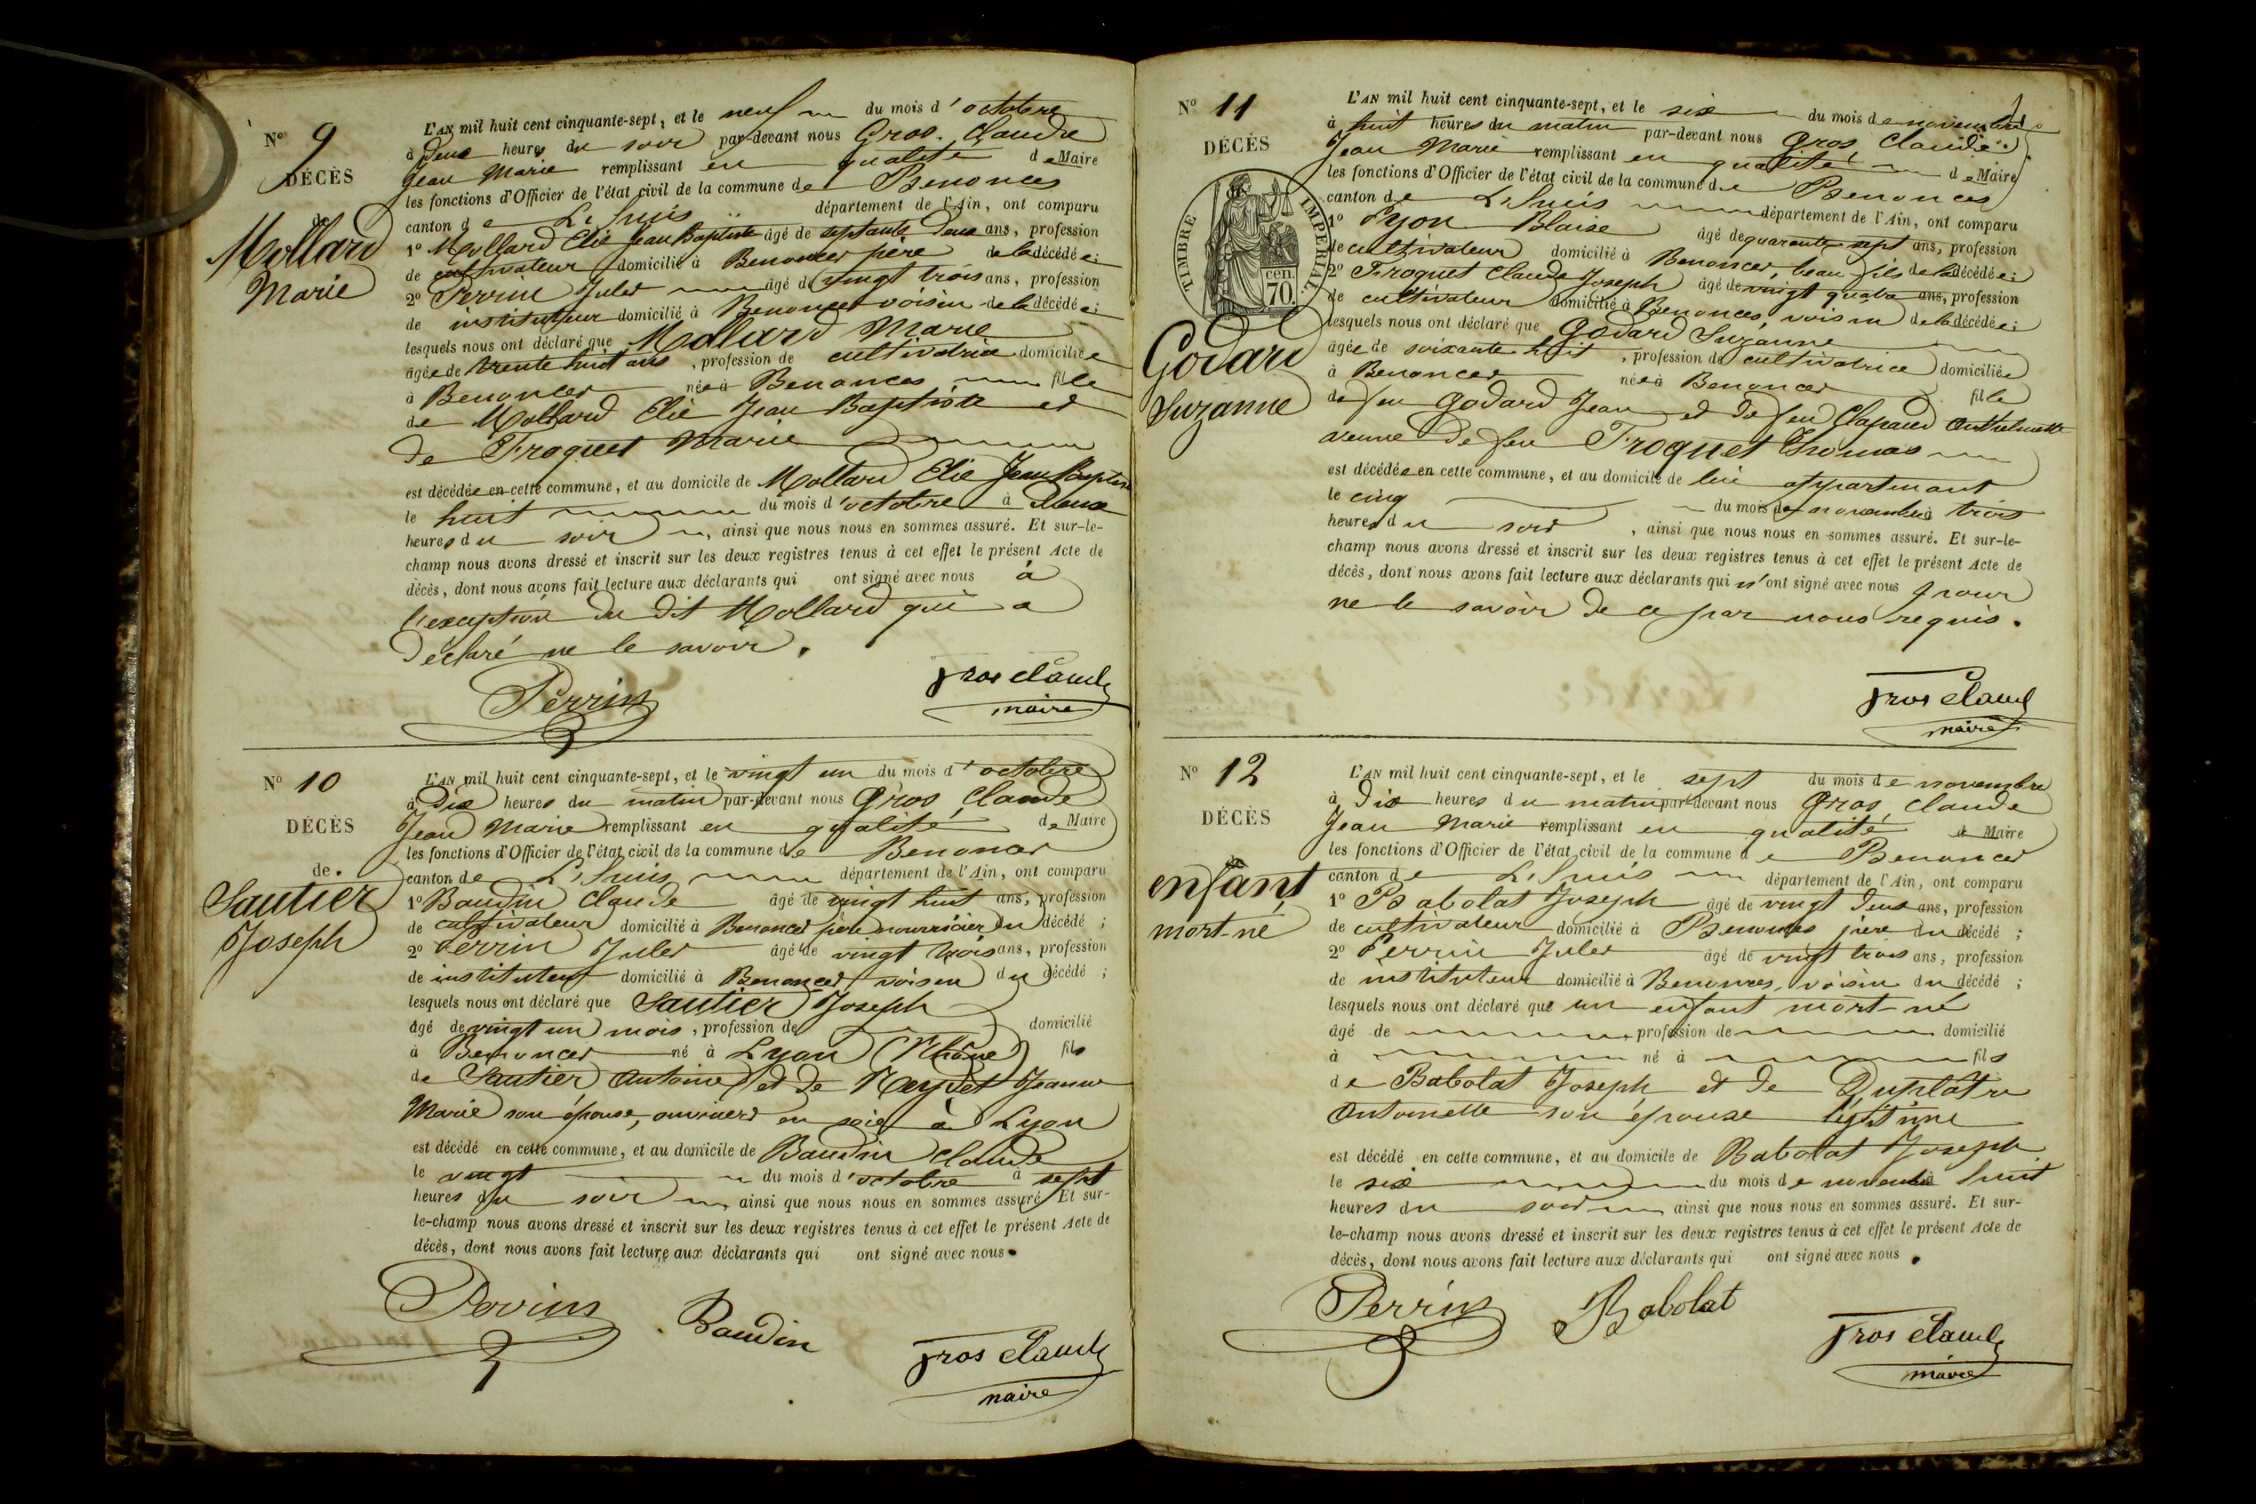 N° 9
DÉCÈS
de
Mollard
Marie
L'AN mil huit cent cinquante-sept, et le neuf du mois d'octobre
à deux heures du soir par-devant nous Gros, Claude
Jean Marie remplissant en qualité de Maire
les fonctions d'Officier de l'état civil de la commune de Benonces
canton de L'huis département de l'Ain, ont comparu
1° Mollard Elie Jean Baptiste âgé de septante deux ans, profession
de cultivateur domicilié à Benonces père de la décédée;
2° Perrin Jules âgé de vingt trois ans, profession
de instituteur domicilié à Benonces voisin de la décédée;
lesquels nous ont déclaré que Mollard Marie
âgée de trente huit ans, profession de cultivatrice domiciliée
à Benonces née à Benonces fille
de Mollard Elie Jean Baptiste et
de Froquet Marie
est décédée en cette commune, et au domicile de Mollard Elie Jean Baptiste
le huit du mois d'octobre à deux
heures du soir, ainsi que nous nous en sommes assuré. Et sur-le-
champ nous avons dressé et inscrit sur les deux registres tenus à cet effet le présent Acte de
décès, dont nous avons fait lecture aux déclarants qui ont signé avec nous à
l'exception du dit Mollard qui a
déclaré ne le savoir.
Perrin
Gros Claude
maire
N° 10
DÉCÈS
de
Sautier
Joseph
L'AN mil huit cent cinquante-sept, et le vingt un du mois d'octobre
à dix heures du matin par-devant nous Gros, Claude
Jean Marie remplissant en qualité de Maire
les fonctions d'Officier de l'état civil de la commune de Benonces
canton de L'huis département de l'Ain, ont comparu
1° Baudin Claude âgé de vingt huit ans, profession
de cultivateur domicilié à Benonces père nourricier du décédé;
2° Perrin Jules âgé de vingt trois ans, profession
de instituteur domicilié à Benonces voisin du décédé;
lesquels nous ont déclaré que Sautier Joseph
âgé de vingt un mois, profession de domicilié
à Benonces né à Lyon (Rhône) fils
de Sautier Antoine et de Jeanne
Marie son épouse, ouvriers en soie à Lyon
est décédé en cette commune, et au domicile de Baudin Claude
le vingt du mois d'octobre à sept
heures du soir, ainsi que nous nous en sommes assuré. Et sur-
le-champ nous avons dressé et inscrit sur les deux registres tenus à cet effet le présent Acte de
décès, dont nous avons fait lecture aux déclarants qui ont signé avec nous.
Perrin Baudin
Gros Claude
maire
N° 11
DÉCÈS
de
TIMBRE IMPÉRIAL
70 cen.
Godard
Suzanne
L'AN mil huit cent cinquante-sept, et le six du mois de novembre
à huit heures du matin par-devant nous Gros, Claude
Jean Marie remplissant en qualité de Maire
les fonctions d'Officier de l'état civil de la commune de Benonces
canton de L'huis département de l'Ain, ont comparu
1° Pyon Blaise âgé de quarante sept ans, profession
de cultivateur domicilié à Benonces, beau fils de la décédée;
2° Froquet Claude Joseph âgé de vingt quatre ans, profession
de cultivateur domicilié à Benonces, voisin de la décédée;
lesquels nous ont déclaré que Godard Suzanne
âgée de soixante huit, profession de cultivatrice domiciliée
à Benonces née à Benonces fille
de feu Godard Jean et de feu Clapaud Anthelmette
veuve de feu Froquet Thomas
est décédée en cette commune, et au domicile de lui appartenant
le cinq du mois de novembre à trois
heures du soir, ainsi que nous nous en sommes assuré. Et sur-le-
champ nous avons dressé et inscrit sur les deux registres tenus à cet effet le présent Acte de
décès, dont nous avons fait lecture aux déclarants qui n'ont signé avec nous pour
ne le savoir de ce par nous requis.
Gros Claude
maire
N° 12
DÉCÈS
enfant
mort-né
L'AN mil huit cent cinquante-sept, et le sept du mois de novembre
à dix heures du matin par-devant nous Gros, Claude
Jean Marie remplissant en qualité de Maire
les fonctions d'Officier de l'état civil de la commune de Benonces
canton de L'huis département de l'Ain, ont comparu
1° Babolat Joseph âgé de vingt deux ans, profession
de cultivateur domicilié à Benonces père du décédé;
2° Perrin Jules âgé de vingt trois ans, profession
de instituteur domicilié à Benonces, voisin du décédé;
lesquels nous ont déclaré que un enfant mort-né
âgé de, profession de domicilié
à né à fils
de Babolat Joseph et de Duplâtre
Antoinette son épouse légitime
est décédé en cette commune, et au domicile de Babolat Joseph
le six du mois de novembre à huit
heures du soir ainsi que nous nous en sommes assuré. Et sur-
le-champ nous avons dressé et inscrit sur les deux registres tenus à cet effet le présent Acte de
décès, dont nous avons fait lecture aux déclarants qui ont signé avec nous.
Perrin Babolat
Gros Claude
maire